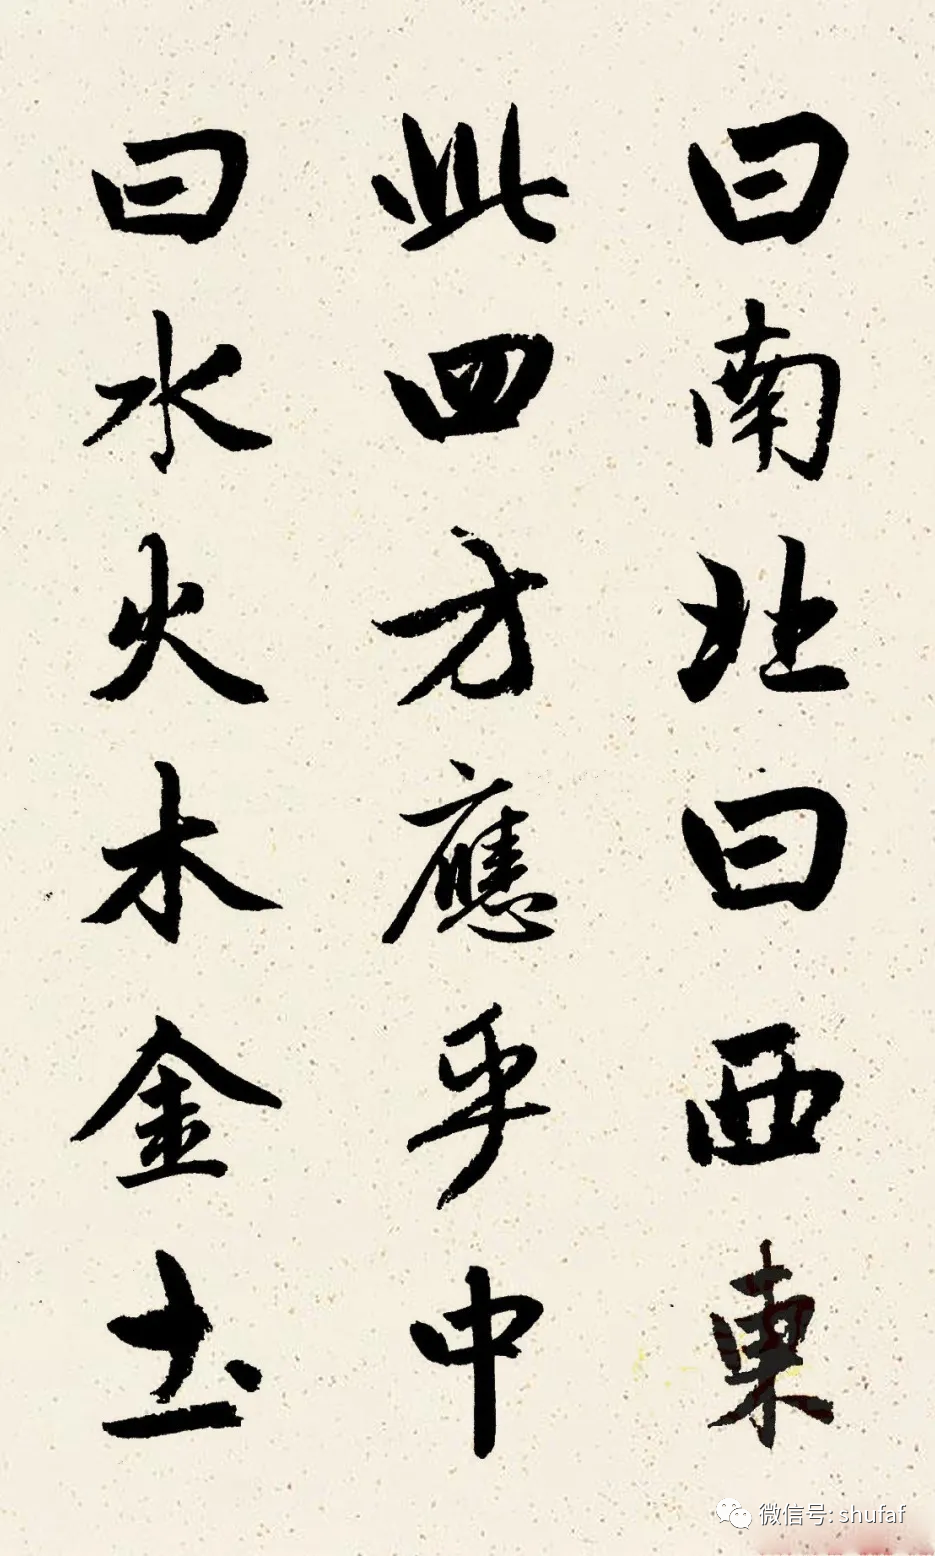 曰南北曰西東
此四方應乎中
曰水火木金土
微信号: shufaf